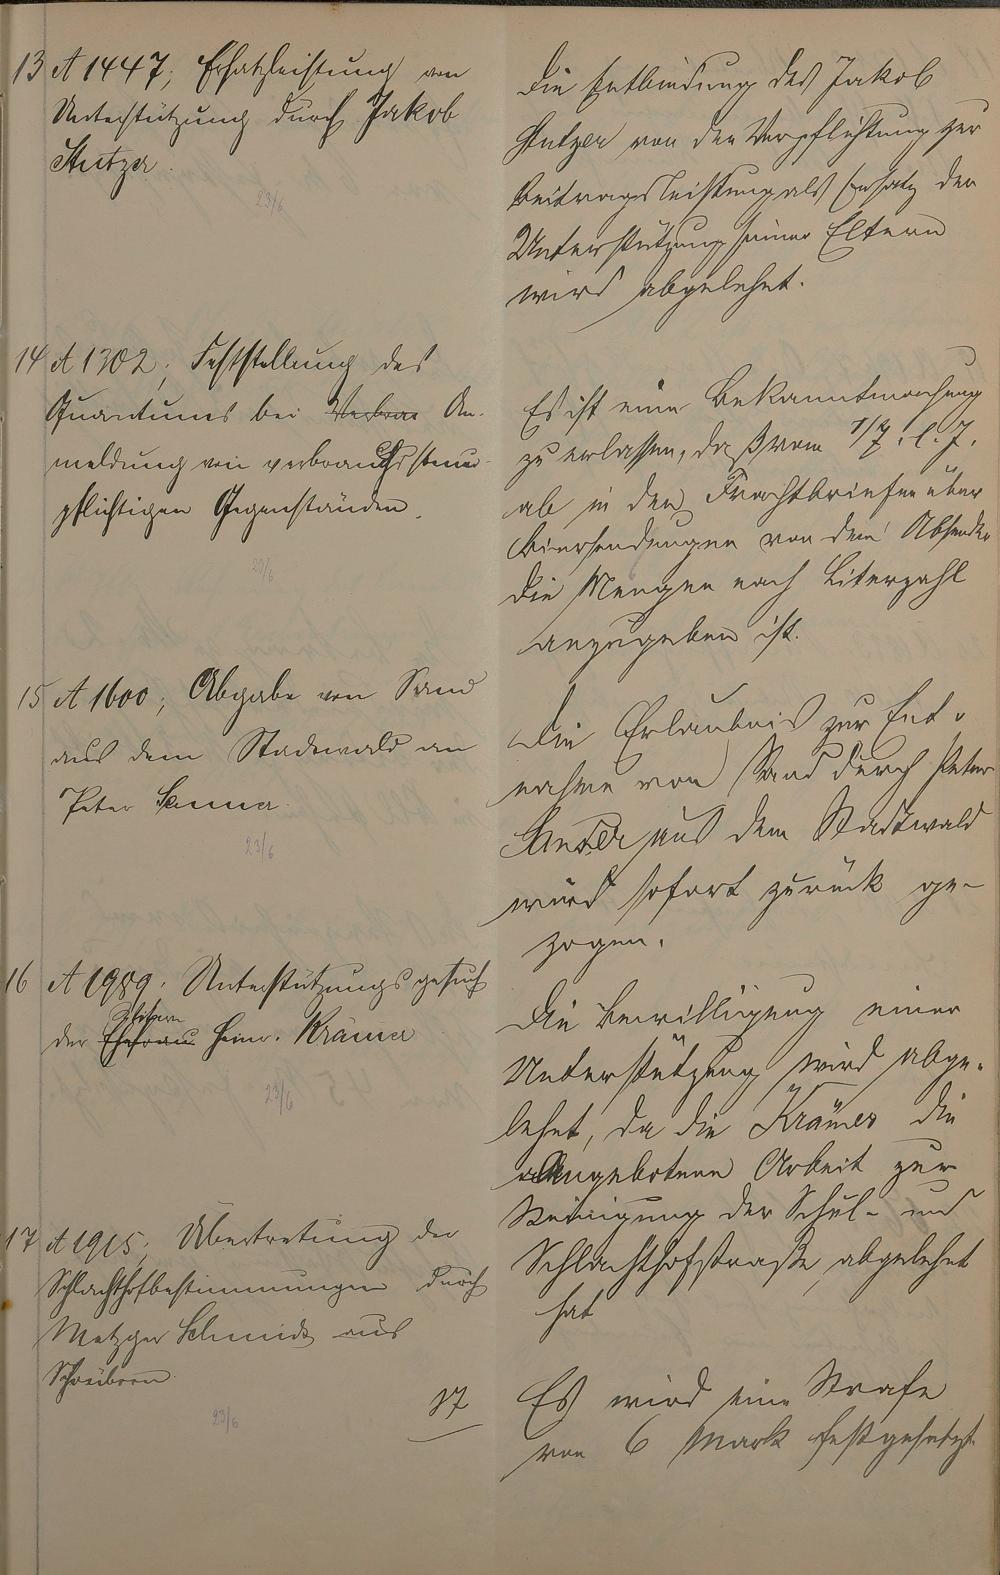 13 A 1447; Ersatzleistung von
Unterstützung durch Jakob
Stutzer.
23/6
Die Entbindung des Jakob
Stutzer von der Verpflichtung zur
Beitragsleistung als Ersatz der
Unterstützung seiner Eltern
wird abgelehnt.
14 A 1302; Feststellung des
Quantums bei Verbrau An-
meldung von verbrauchssteuer-
pflichtigen Gegenständen.
23/6
Es ist eine Bekanntmachung
zu erlassen, daß vom 1/7. l. J.
ab in den Frachtbriefen über
Biersendungen von dem Absender
die Menge nach Literzahl
anzugeben ist.
15 A 1600; Abgabe von Sand
aus dem Stadtwald an
Peter
23/6
Die Erlaubnis zur Ent-
nahme von Sand durch Peter
aus dem Stadtwald
wird sofort zurück ge-
zogen.
16 A 1989. Unterstützungsgesuch
der Ehefrau Heinr. Krämer
23/6
Die Bewilligung einer
Unterstützung wird abge-
lehnt, da die Krämer die
angebotene Arbeit zur
Reinigung der Schul- und
Schlachthofstraße abgelehnt
hat
17 A 1915; Übertretung der
Schlachthofbestimmungen durch
Metzger Schmidt aus
23/6
17
Es wird eine Strafe
von 6 Mark festgesetzt.